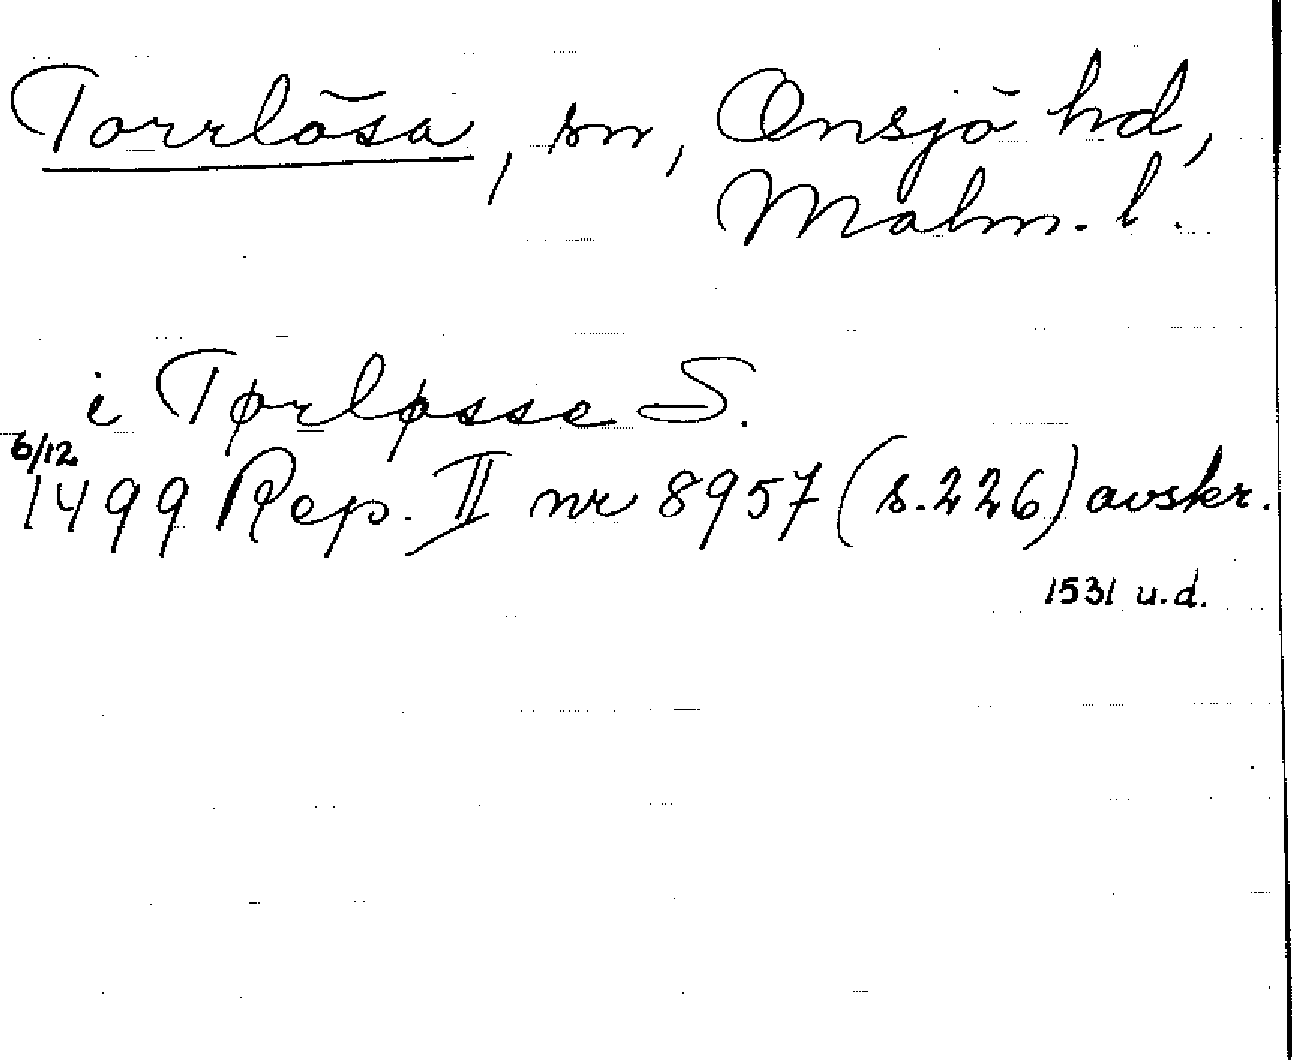 Torrlösa, sn, Onsjö hd,
Malm. l.
i Tørløsse S.
6/12
1499 Rep. II nr 8957 (s.226) avskr.
1531 u.d.